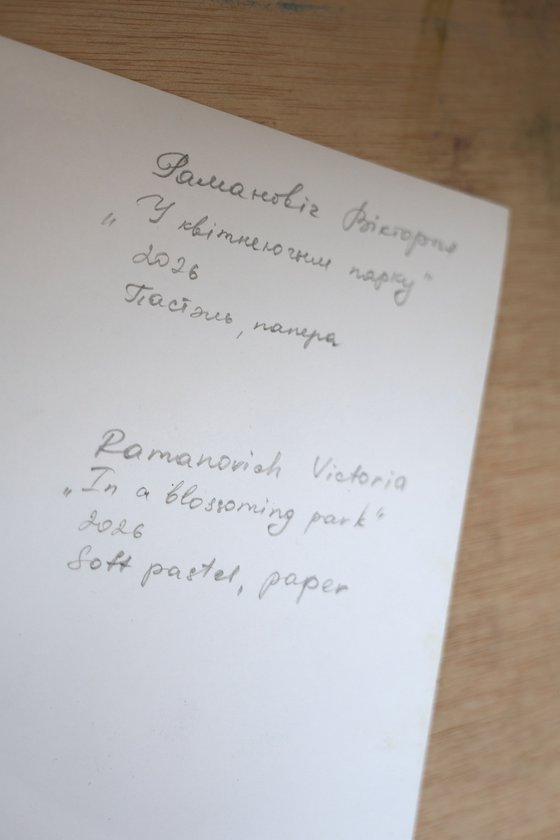 Рамановіч Вікторыя
„У квітнеючым парку“
2026
Пастэль, папера
Ramanovich Victoria
„In a blossoming park“
2026
Soft pastel, paper